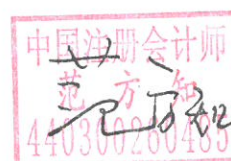 中国注册会计师
范方知
440300260483